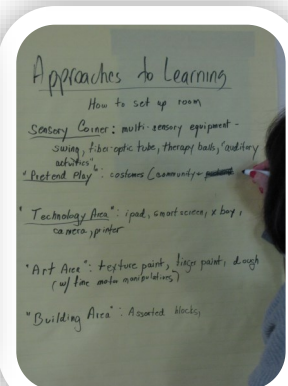 Approaches to Learning
How to set up room
Sensory Corner: multi-sensory equipment -
swing, fiber-optic tube, therapy balls, "auditory
activities",
"Pretend Play": costumes (community
"Technology Area": ipad, smartscreen, x box,
camera, printer
"Art Area": texture paint, finger paint, dough
(w/ fine motor manipulatives)
"Building Area": Assorted blocks,